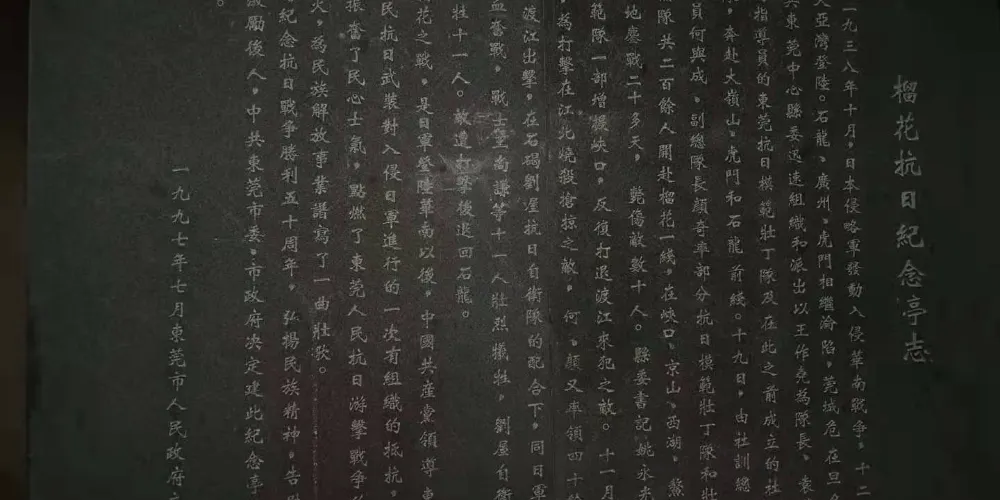 榴花抗日紀念亭志
一九三八年十月，日本侵略軍發動入侵華南戰争。十二
大亞灣登陸。石龍、廣州、虎門相繼淪陷，莞城危在旦
共東莞中心縣委迅速組織和派出以王作堯為隊長、袁
指導員的東莞抗日模範壯丁隊及在此之前成立的社
，奔赴大嶺山、虎門和石龍前綫。十九日，由社訓總
員何與成、副總隊長顏奇率部分抗日模範壯丁隊和壯
隊共二百餘人開赴榴花一綫，在峽口、京山、西湖、
地鏖戰二十多天，斃傷敵數十人。縣委書記姚永光
範隊一部增援峽口，反復打退渡江來犯之敵。十一月
，為打擊在江北燒殺搶掠之敵，何、顏又率領四十餘
渡江出擊，在石碣劉屋抗日自衛隊的配合下，同日軍
血奮戰，戰士董尚謙等十一人壯烈犧牲，劉屋自衛
牲十一人。敵遭打擊後退回石龍。
花之戰，是日軍登陸華南以後，中國共産黨領導東
民抗日武裝對入侵日軍進行的一次有組織的抵抗。
振奮了民心士氣，點燃了東莞人民抗日游擊戰争
火，為民族解放事業譜寫了一曲壯歌。
紀念抗日戰争勝利五十周年，弘揚民族精神，告
激勵後人，中共東莞市委、市政府決定建此紀念亭
。
一九九七年七月東莞市人民政府